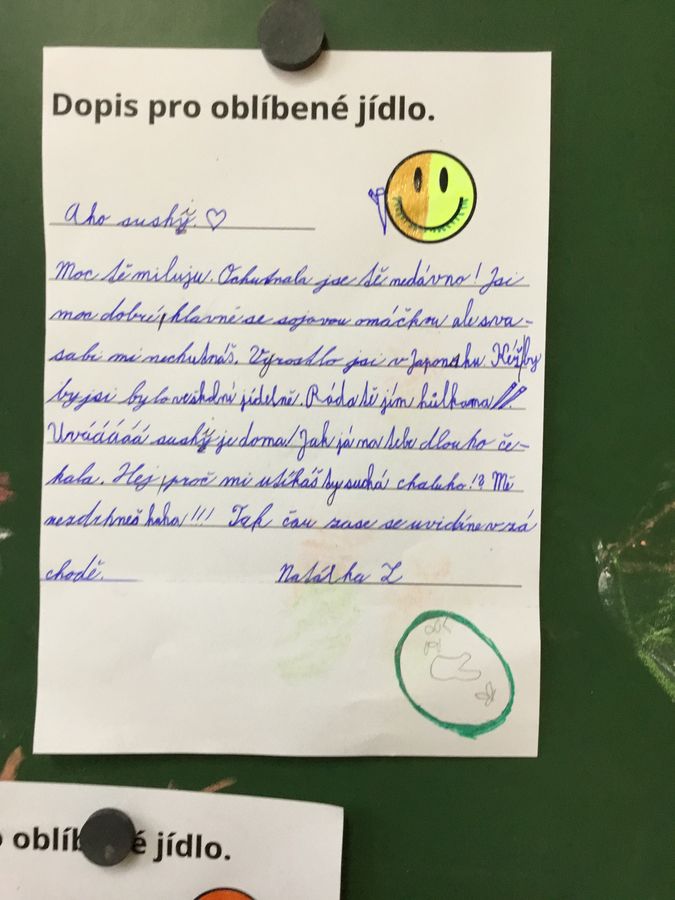 Dopis pro oblíbené jídlo.
Aho sushy.
Moc tě miluju. Ochutnala jse tě nedávno! Jsi
moc dobrí, hlavně se sojovou omáčkou ale s va-
sabi mi nechutnáš. Vyrostlo jsi v Japonsku. Kéžby
by jsi bylo veškolní jídelně. Ráda tě jím hůlkama
Uvááááá sushy je doma! Jak já na tebe dlouho če-
kala. Hej, proč mi utíkáš ty suchá chaluho!? Mě
nezdrhneš haha!!! Tak čau zase se uvidíne v zá
chodě.
Natálka Z
o oblíb é jídlo.